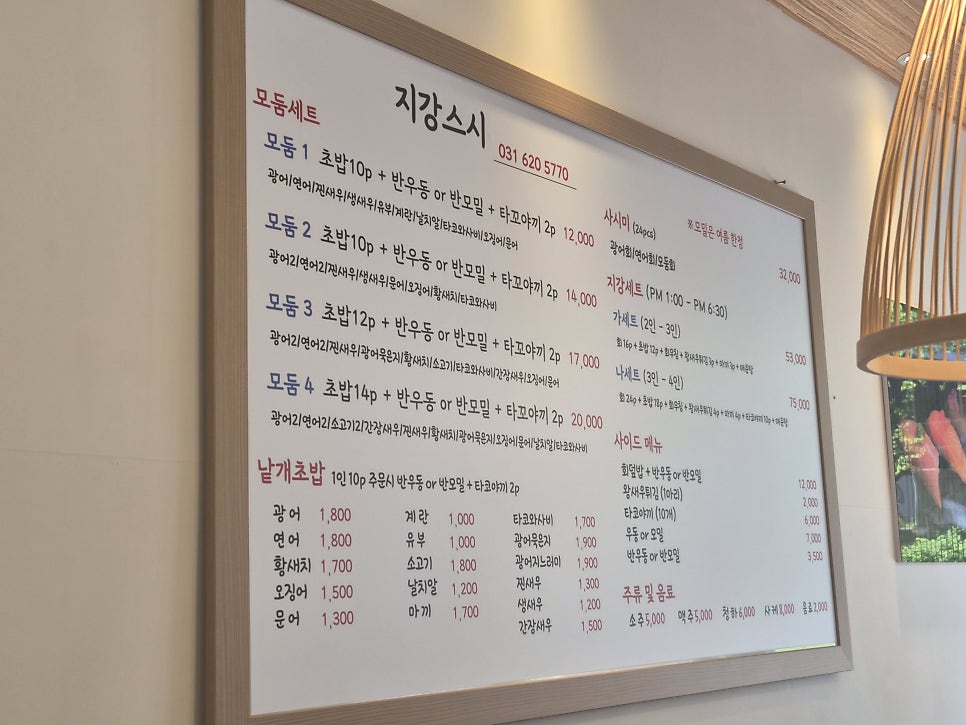 지강스시
031 620 5770
모둠세트
모둠 1 초밥10p + 반우동 or 반모밀 + 타꼬야끼 2p 12,000
광어/연어/찐새우/생새우/유부/계란/날치알/타코와사비/오징어/문어
모둠 2 초밥10p + 반우동 or 반모밀 + 타꼬야끼 2p 14,000
광어2/연어2/찐새우/생새우/문어/오징어/황새치/타코와사비
모둠 3 초밥12p + 반우동 or 반모밀 + 타꼬야끼 2p 17,000
광어2/연어2/찐새우/광어묵은지/황새치/소고기/타코와사비/간장새우/오징어/문어
모둠 4 초밥14p + 반우동 or 반모밀 + 타꼬야끼 2p 20,000
광어2/연어2/소고기2/간장새우/찐새우/황새치/광어묵은지/오징어/문어/날치알/타코와사비
낱개초밥 1인 10p 주문시 반우동 or 반모밀 + 타코야끼 2p
광어 1,800 계란 1,000 타코와사비 1,700
연어 1,800 유부 1,000 광어묵은지 1,900
황새치 1,700 소고기 1,800 광어지느러미 1,900
오징어 1,500 날치알 1,200 찐새우 1,300
문어 1,300 마끼 1,700 생새우 1,200
간장새우 1,500
사시미 (24pcs) ※모밀은 여름 한정
광어회/연어회/모둠회 32,000
지강세트 (PM 1:00 - PM 6:30)
가세트 (2인 - 3인)
회 16p + 초밥 12p + 회무침 + 왕새우튀김 3p + 마끼 3p + 매운탕 53,000
나세트 (3인 - 4인)
회 24p + 초밥 18p + 회무침 + 왕새우튀김 4p + 마끼 4p + 타코야끼 10p + 매운탕 75,000
사이드 메뉴
회덮밥 + 반우동 or 반모밀 12,000
왕새우튀김 (1마리) 2,000
타코야끼 (10개) 6,000
우동 or 모밀 7,000
반우동 or 반모밀 3,500
주류 및 음료
소주 5,000 맥주 5,000 청하 6,000 사케 8,000 음료 2,000